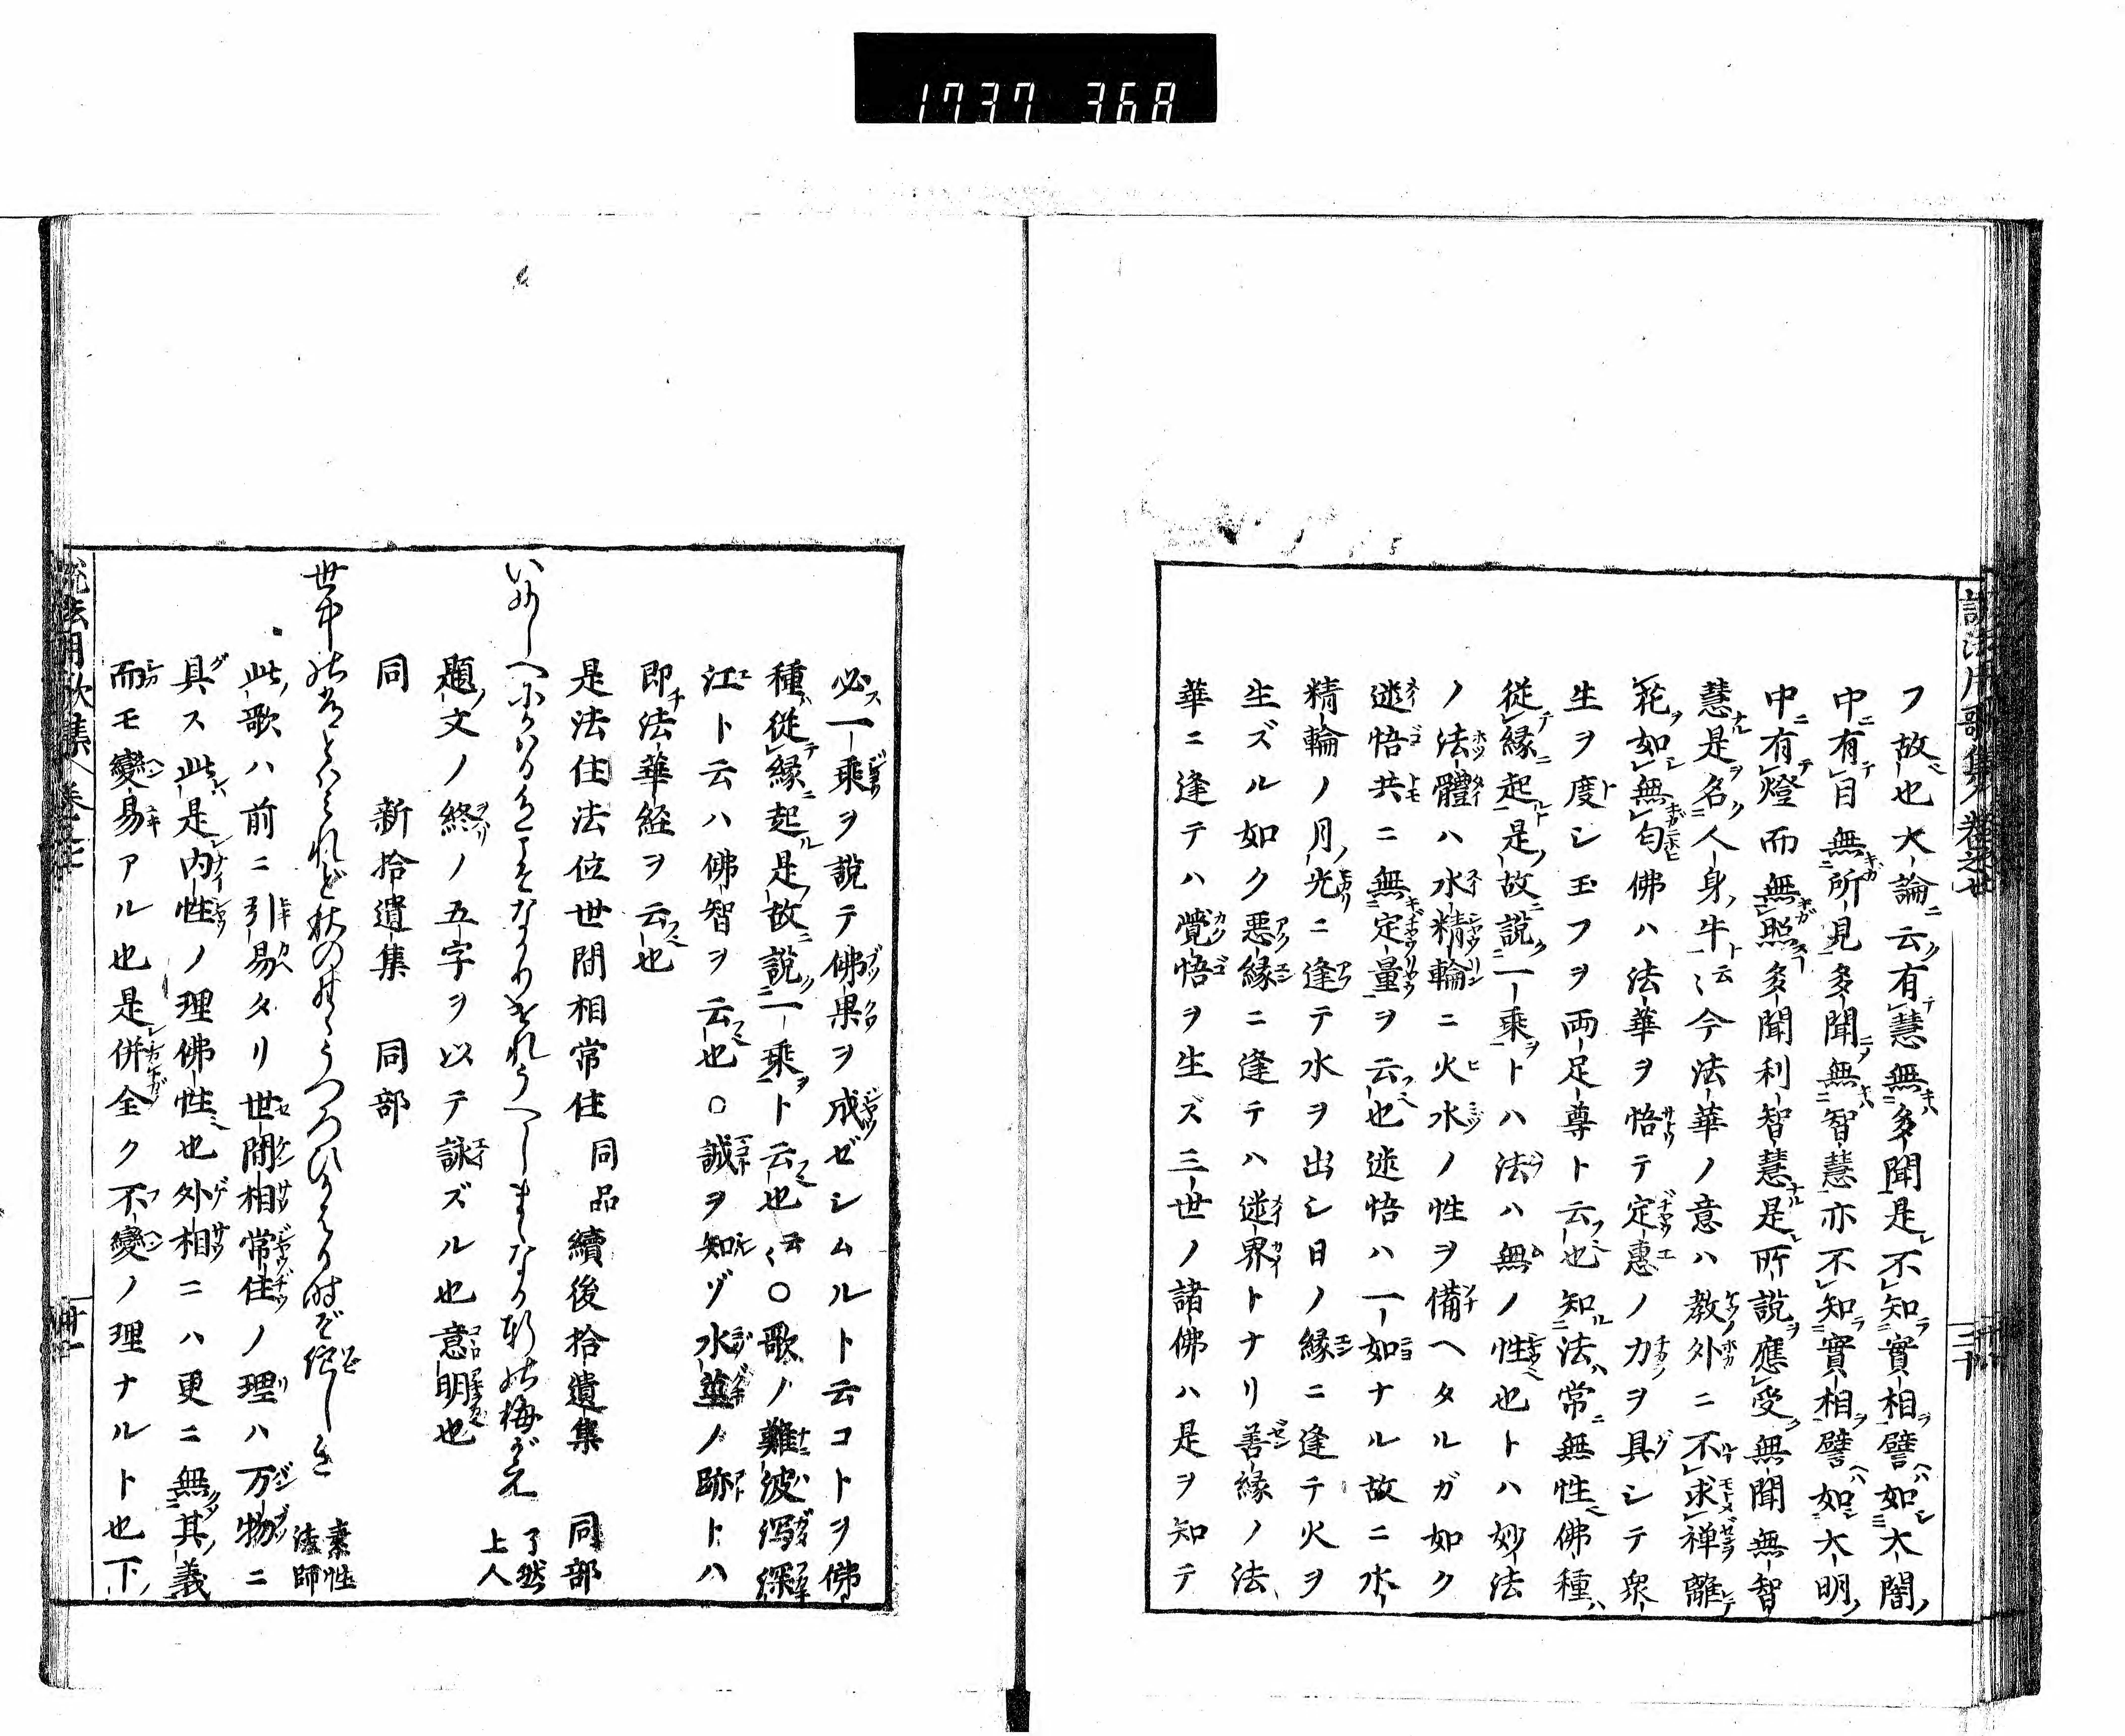 1737 368
説法用歌集 卷之廿
フ故也大論ニ云ク有テ慧無キハ多聞是レ不知ラ實相ヲ譬ヘハ如シ大闇ノ
中ニ有テ目無キカ所見多聞ニノ無キハ智慧亦不知ラ實相ヲ譬ヘハ如シ大明ノ
中ニ有テ燈而無キガ照スヿ多聞利智慧ナル是レ所説ヲ應受ク無聞無智
慧ナル是ヲ名ク人身ノ牛ト云云今法華ノ意ハ教外ニ不求禅離テ
花ヲ如シ無キガ匂佛ハ法華ヲ悟テ定惠ノ力ヲ具シテ衆
生ヲ度シ玉フヲ両足尊ト云フ也知ル法ハ常ニ無性佛種ハ
從テ縁ニ起ルト是ノ故ニ説ク一乘ヲトハ法ハ無ノ性也トハ妙法
ノ法體ハ水精輪ニ火水ノ性ヲ備ヘタルガ如ク
迷悟共ニ無定量ヲ云フ也迷悟ハ一如ナル故ニ水
精輪ノ月ノ光ニ逢テ水ヲ出シ日ノ縁ニ逢テ火ヲ
生ズル如ク惡縁ニ逢テハ迷界トナリ善縁ノ法
華ニ逢テハ覺悟ヲ生ズ三世ノ諸佛ハ是ヲ知テ
必ス一乘ヲ説テ佛果ヲ成ゼシムルト云コトヲ佛
種ハ從テ縁ニ起ル是ノ故ニ説ク一乘ヲト云フ也云云〇歌ノ難波潟深
江ト云ハ佛智ヲ云フ也〇誠ヲ知ルヅ水莖ノ跡トハ
即チ法華経ヲ云フ也
是法住法位世間相常住 同品 續後拾遺集 同部
いにしへにかはらねこそなかりけれうへしまゝなる軒は梅がえ 了然上人
題ノ文ノ終ノ五字ヲ以テ詠ズル也意明也
同 新拾遺集 同部
世中は常とハみれど秋の野のうつろひかはる時ぞ侘しき 素性法師
此ノ歌ハ前ニ引易タリ世間相常住ノ理ハ万物ニ
具ス此レハ是レ内性ノ理佛性也外相ニハ更ニ無ク其ノ義
而モ變易アル也是レ併全ク不變ノ理ナルト也下ノ
説法用歌集 卷之廿